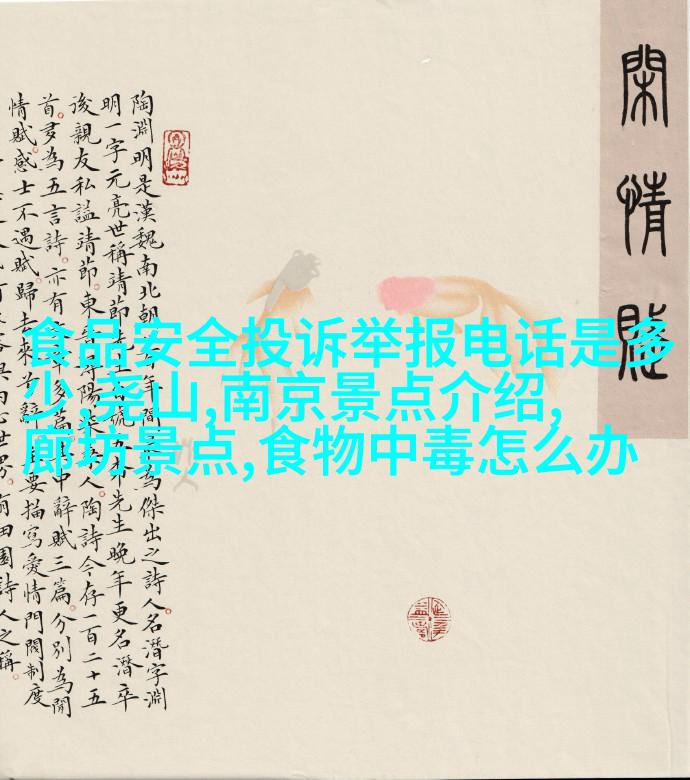 閑情賦
陶淵明是漢魏南北朝年間為傑出之詩人。名潛字淵
明一字元亮世稱靖節先生號先生晚年更名潛卒
後親友私謚靖節。東晉潯陽柴桑人。陶詩今存一百二十五
首。多為五言詩。亦有多篇其中辭賦三篇。分別為閒
情賦。感士不遇賦。歸去來兮辭。主要描寫愛情門閥制度
田園詩人之稱。
食品安全投诉举报电话是多
少,尧山,南京景点介绍,
廊坊景点,食物中毒怎么办